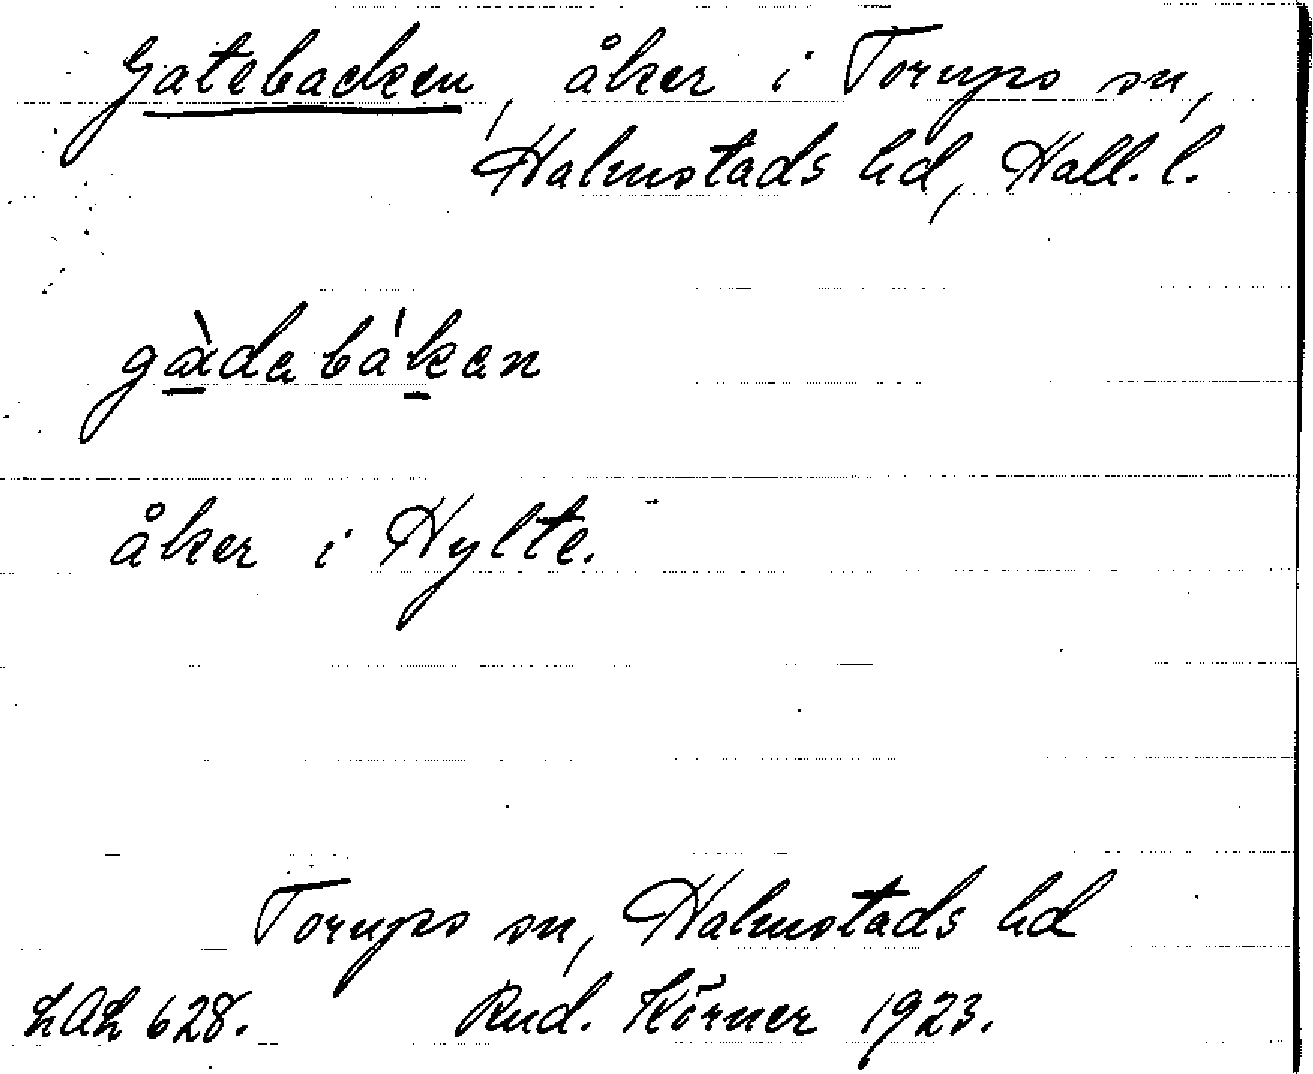 Gatebacken, åker i Torups sn,
Halmstads hd, Hall. l.
gàdabákan
åker i Hylte.
Torups sn, Halmstads hd
LAL 628. Rud. Körner 1923.